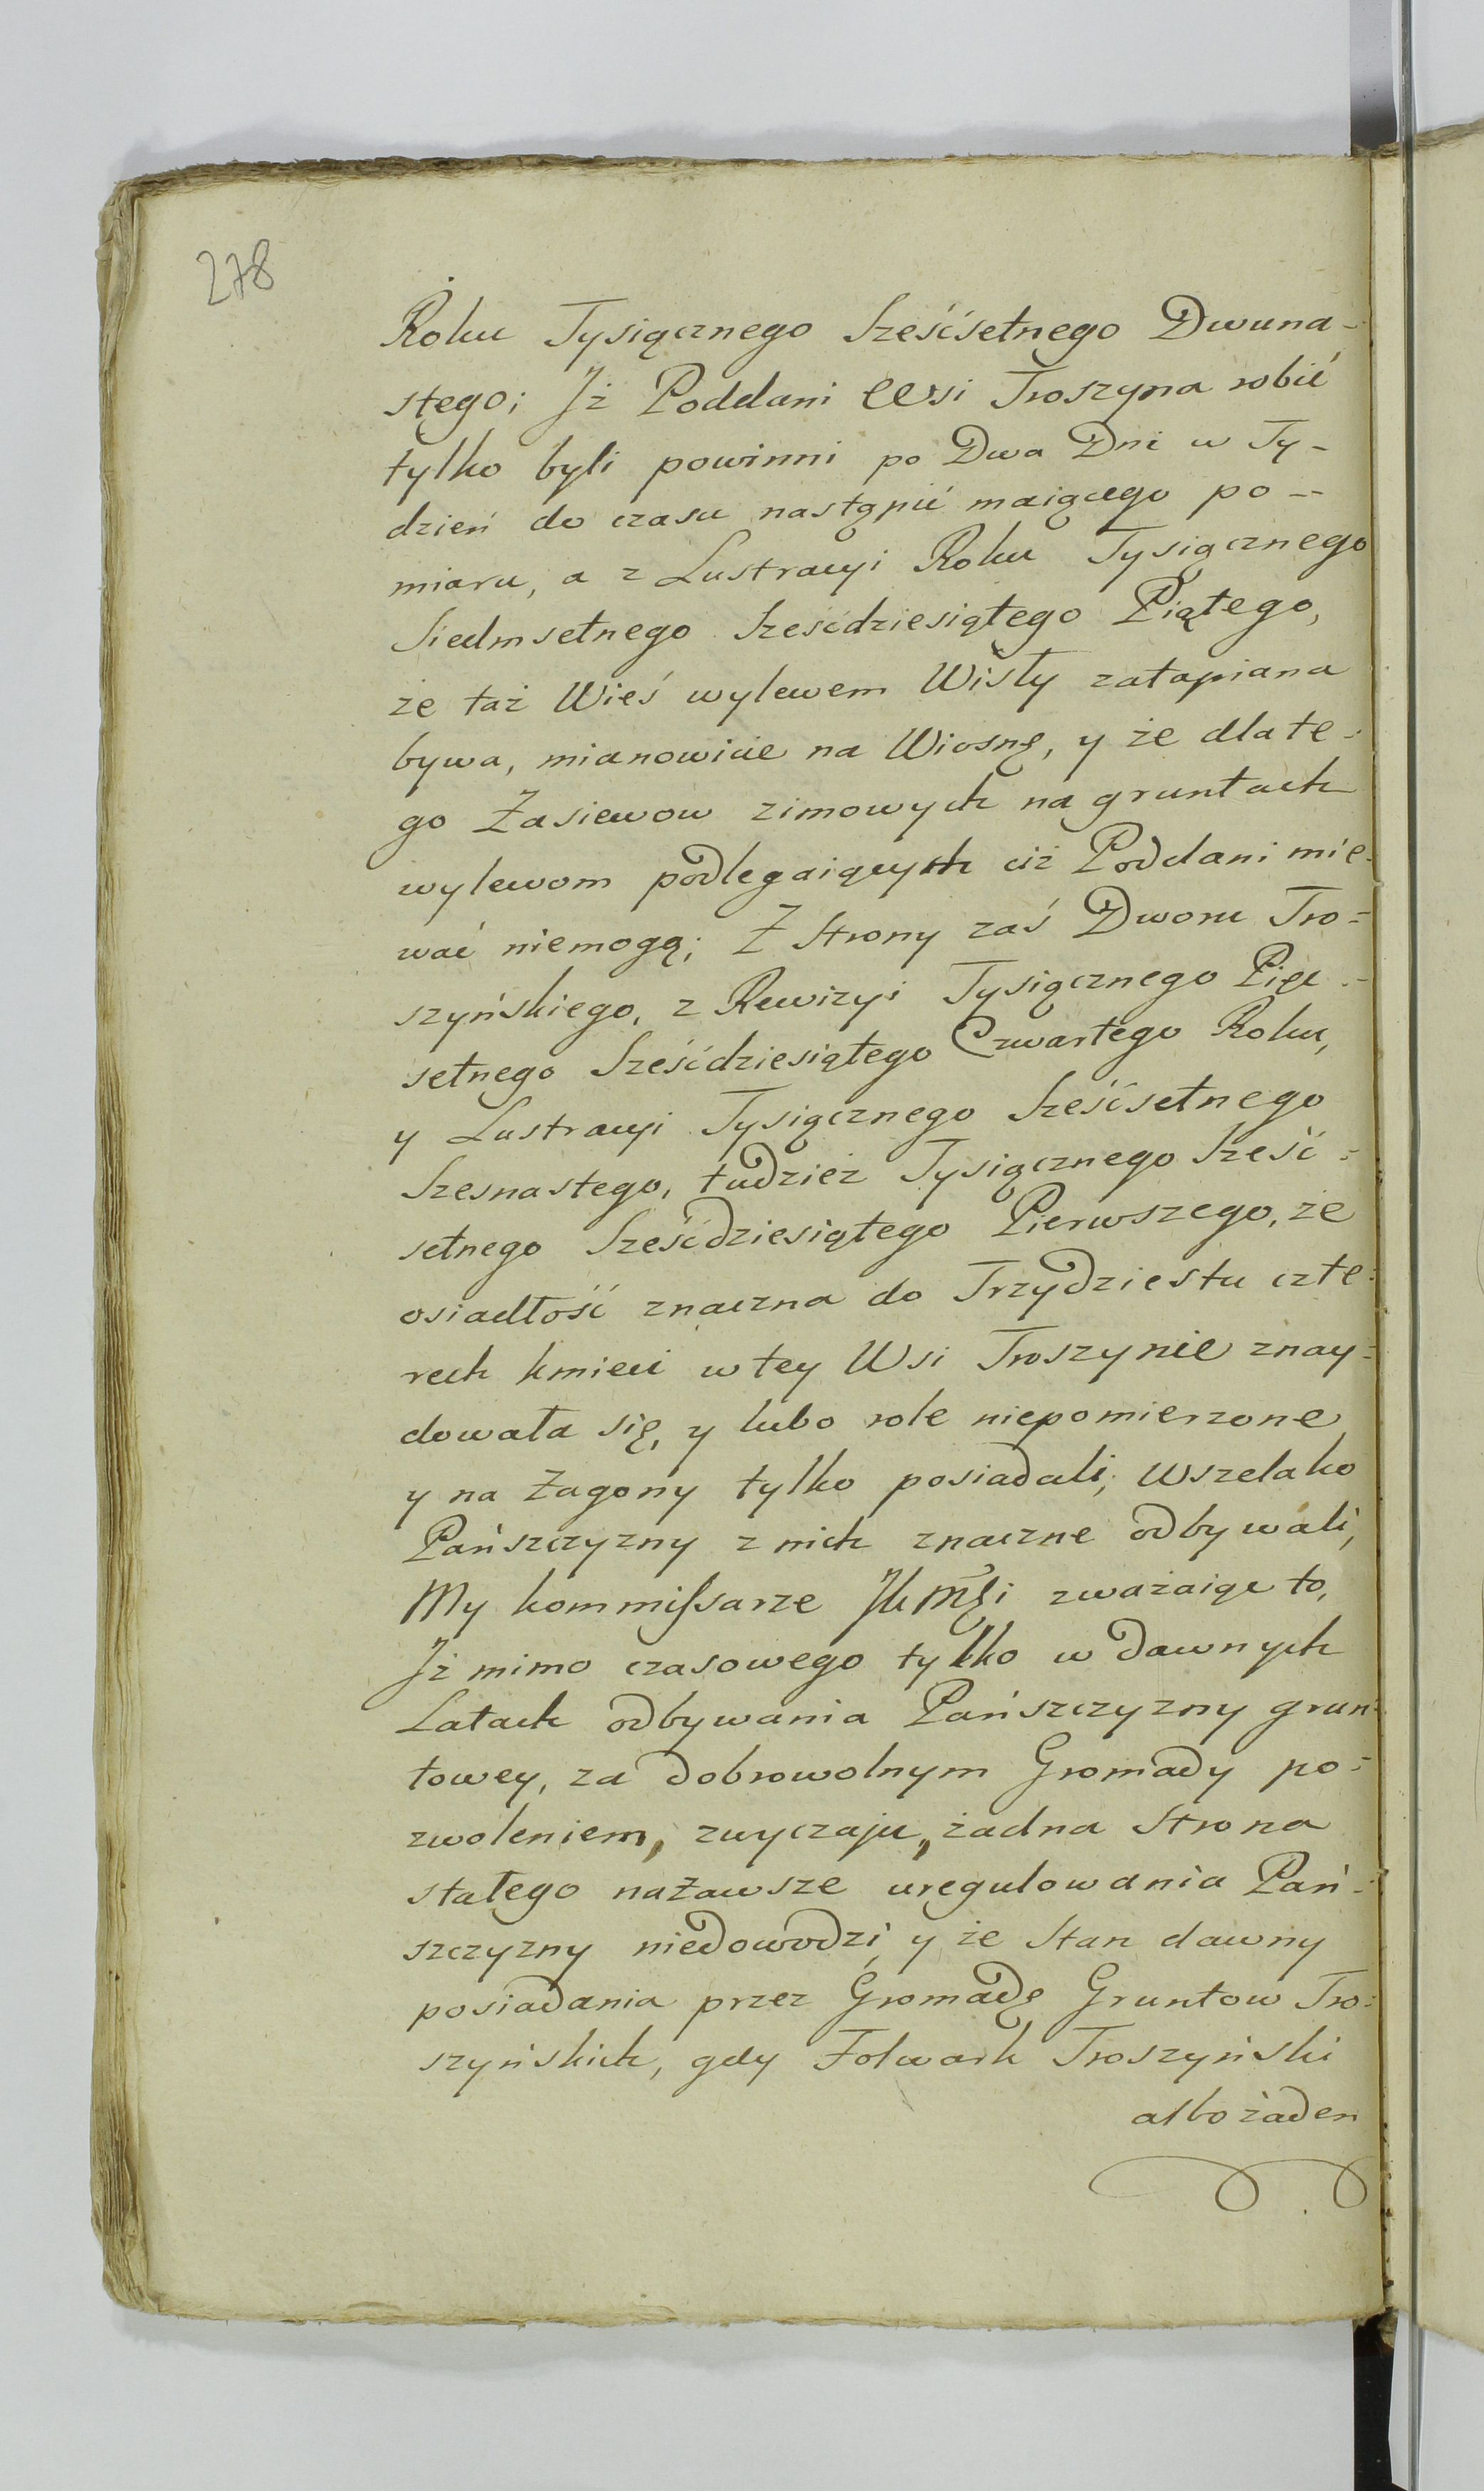 278
Roku Tysiącznego Sześćsetnego Dwuna-
stego; Iż Poddani Wsi Troszyna robić
tylko byli powinni po Dwa Dni w Ty-
dzień do czasu nastąpić maiącego po--
miaru, a z Lustracyi Roku Tysiącznego
Siedmsetnego Sześćdziesiątego Piątego,
że taż Wieś wylewem Wisły zatapiana
bywa, mianowicie na Wiosnę, y że dlate-
go Zasiewow zimowych na gruntach
wylewom podlegaiących ciż Poddani mie-
wać niemogą; Z Strony zaś Dworu Tro=
szyńskiego, z Rewizyi Tysiącznego Pięć-
setnego Sześćdziesiątego Czwartego Roku,
y Lustracyi Tysiącznego Sześćsetnego
Szesnastego, tudzież Tysiącznego Sześć=
setnego Sześćdziesiątego Pierwszego, że
osiadłość znaczna do Trzydziestu czte=
rech kmieci w tey Wsi Troszynie znay=
dowała się, y lubo role niepomierzone
y na Zagony tylko posiadali, Wszelako
Pańszczyzny z nich znaczne odbywali,
My kommissarze JKMći zważaiąc to,
Iż mimo czasowego tylko w dawnych
Latach odbywania Pańszczyzny grun-
towey, za dobrowolnym Gromady po=
zwoleniem, zwyczaju, żadna Strona
stałego nazawsze uregulowania Pań-
szczyzny niedowodzi, y że Stan dawny
posiadania przez Gromadę Gruntow Tro=
szyńskich, gdy Folwark Troszyński
albo żaden